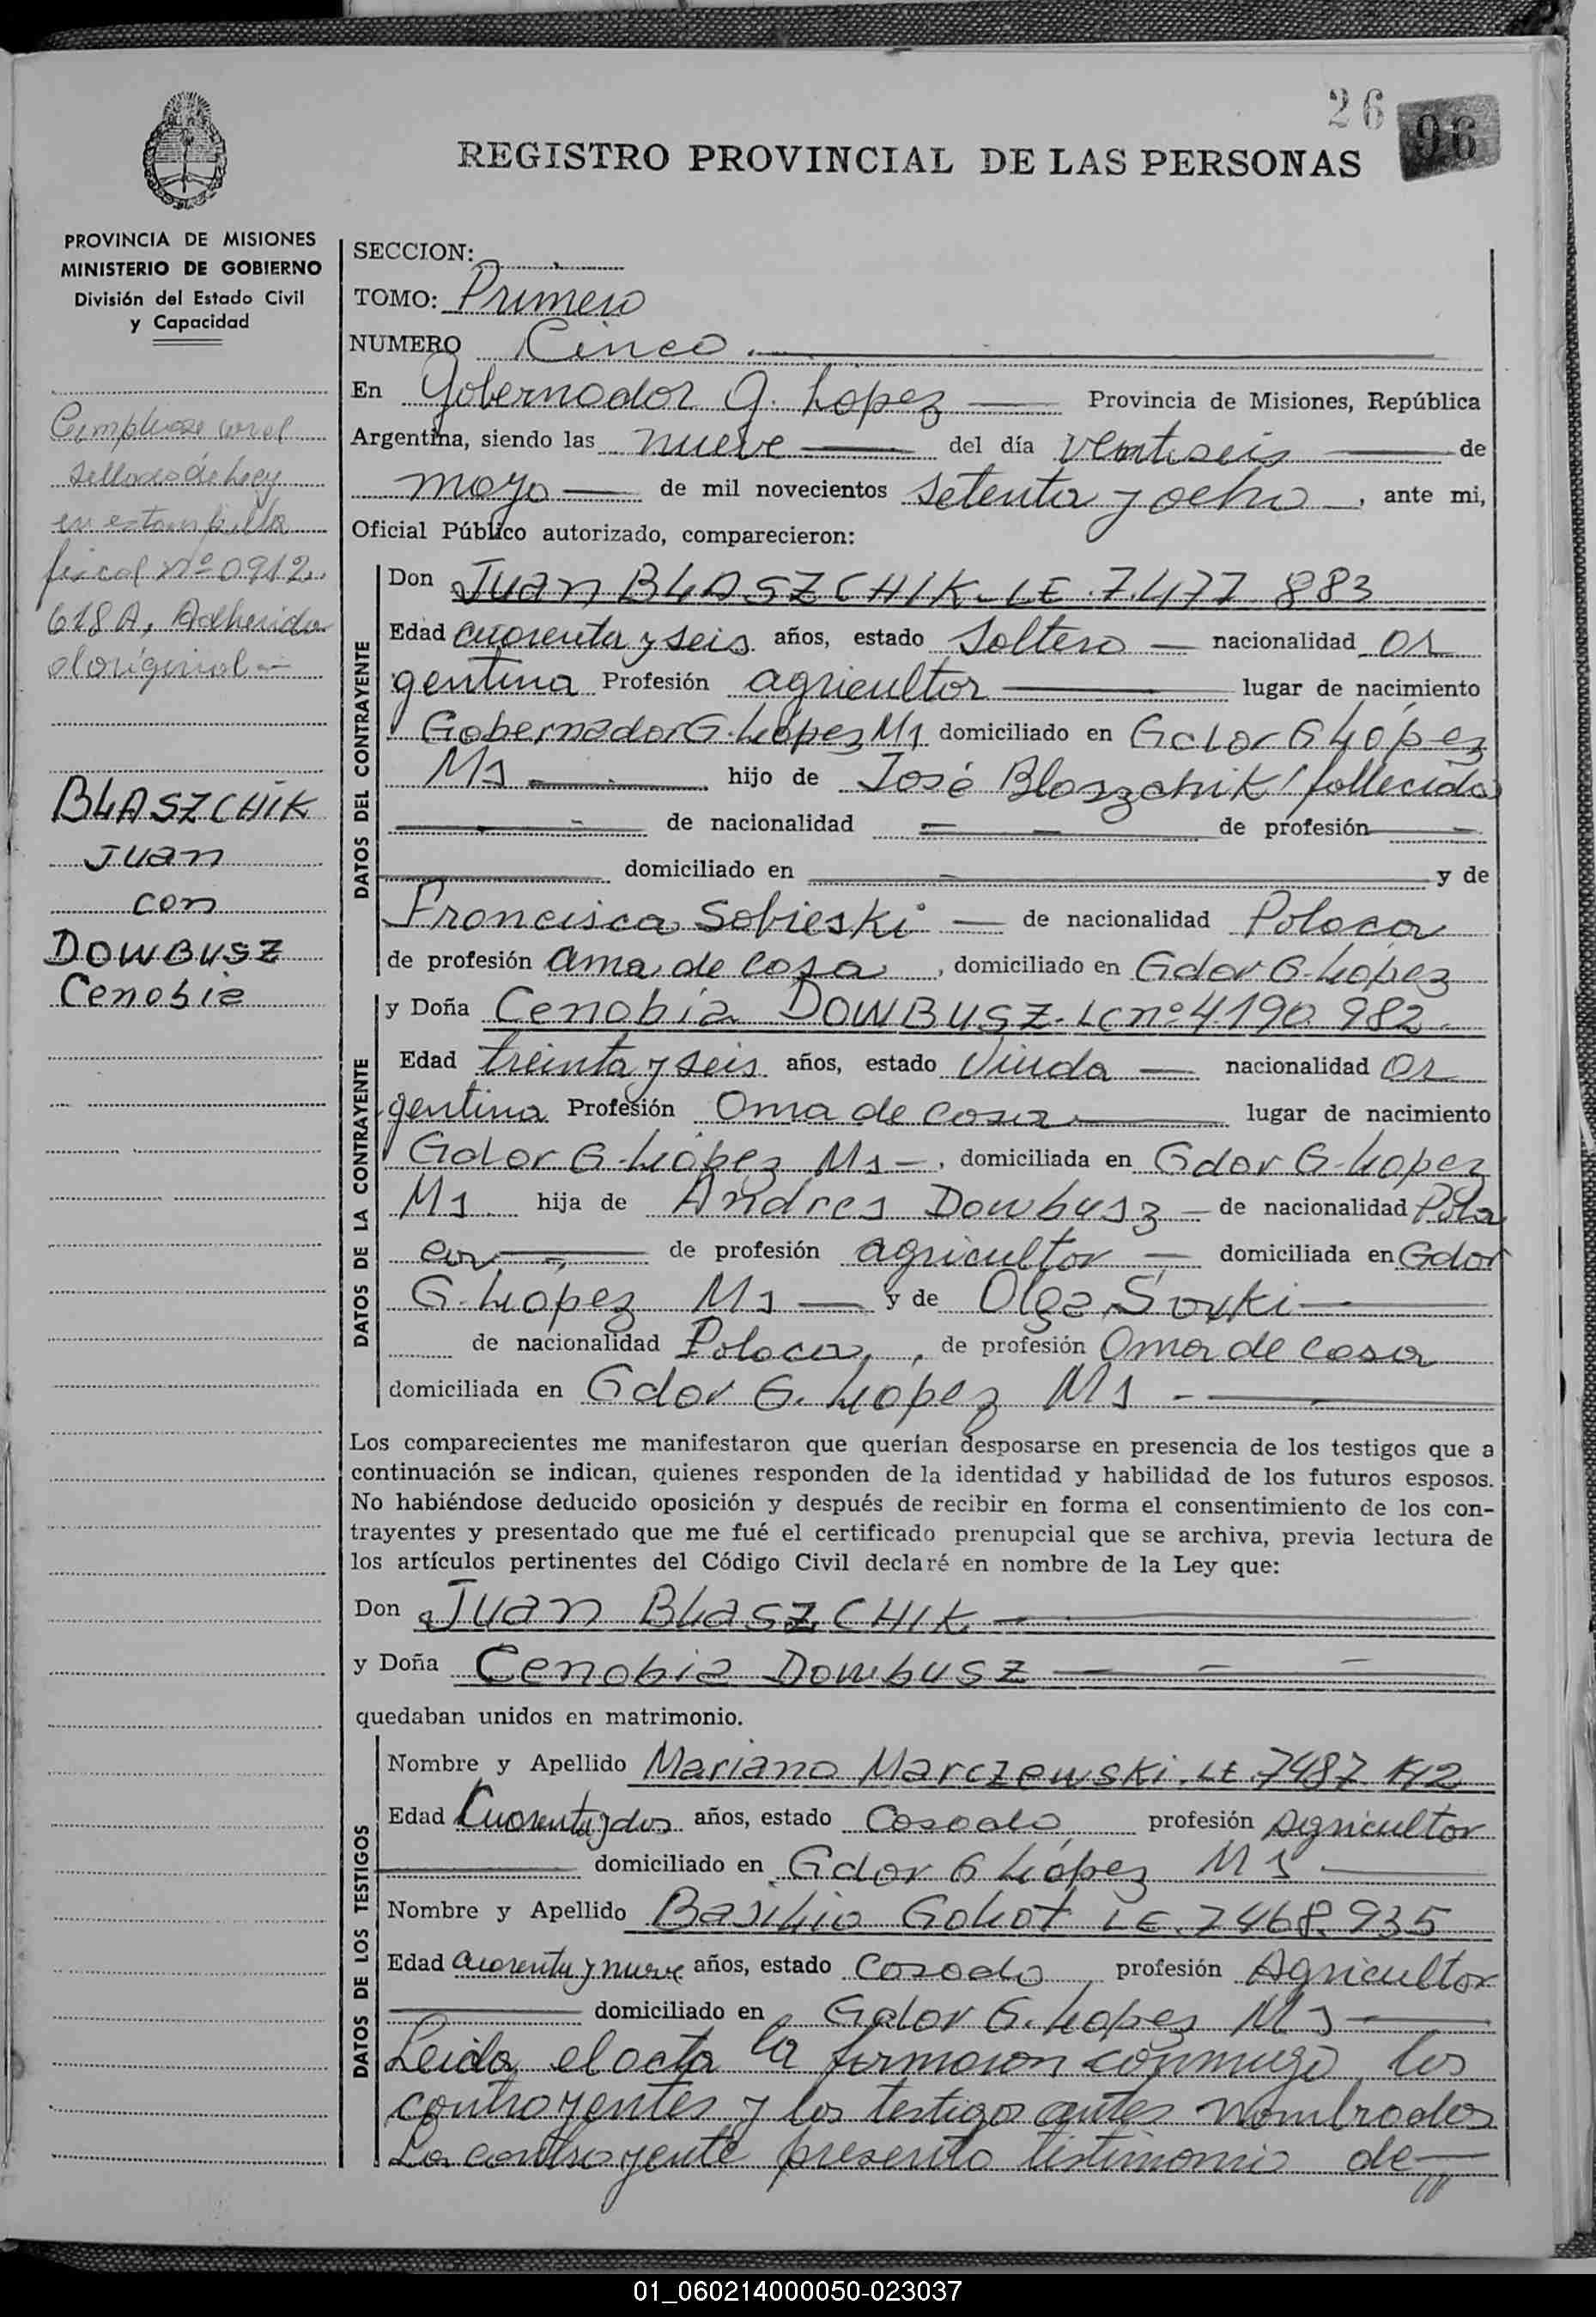 26
96
REGISTRO PROVINCIAL DE LAS PERSONAS
PROVINCIA DE MISIONES
MINISTERIO DE GOBIERNO
División del Estado Civil
y Capacidad
Cumplióse con el
sellado de Ley
en estampilla
fiscal nº 0912
618 A, Adherida
al original
BLASZCHIK
Juan
con
DOWBUSZ
Cenobia
SECCION:
TOMO: Primero
NUMERO Cinco.
En Gobernador G. López Provincia de Misiones, República
Argentina, siendo las nueve del día ventiseis de
mayo de mil novecientos setenta y ocho, ante mi,
Oficial Público autorizado, comparecieron:
DATOS DEL CONTRAYENTE
Don Juan BLASZCHIK. LE 7.477 883
Edad cuarenta y seis años, estado Soltero nacionalidad ar
gentina Profesión agricultor lugar de nacimiento
Gobernador G. López Ms domiciliado en Gdor G López
Ms hijo de José Blaszchik (fallecido)
de nacionalidad de profesión
domiciliado en y de
Francisca Sobieski de nacionalidad Polaca
de profesión ama de casa, domiciliado en Gdor G. López
DATOS DE LA CONTRAYENTE
y Doña Cenobia DOWBUSZ. LC nº 4.190 982.
Edad treinta y seis años, estado Viuda nacionalidad ar
gentina Profesión ama de casa lugar de nacimiento
Gdor G. López Ms, domiciliada en Gdor G. López
Ms. hija de Andres Dowbusz de nacionalidad Pola
ca de profesión agricultor domiciliada en Gdor
G. López Ms y de Olga
de nacionalidad Polaca, de profesión ama de casa
domiciliada en Gdor G. López Ms
Los comparecientes me manifestaron que querían desposarse en presencia de los testigos que a
continuación se indican, quienes responden de la identidad y habilidad de los futuros esposos.
No habiéndose deducido oposición y después de recibir en forma el consentimiento de los con-
trayentes y presentado que me fué el certificado prenupcial que se archiva, previa lectura de
los artículos pertinentes del Código Civil declaré en nombre de la Ley que:
Don Juan BLASZCHIK
y Doña Cenobia Dowbusz
quedaban unidos en matrimonio.
DATOS DE LOS TESTIGOS
Nombre y Apellido Mariano Marczewski. LE. 7487
Edad Cuarenta y dos años, estado Casado, profesión Agricultor
domiciliado en Gdor G López Ms
Nombre y Apellido Basilio Golot LE. 7468.935
Edad cuarenta y nueve años, estado Casado, profesión Agricultor
domiciliado en Gdor G. López Ms
Leida el acta la firmaron conmigo los
contrayentes y los testigos antes nombrados
La contrayente presento testimonio de
01_060214000050-023037